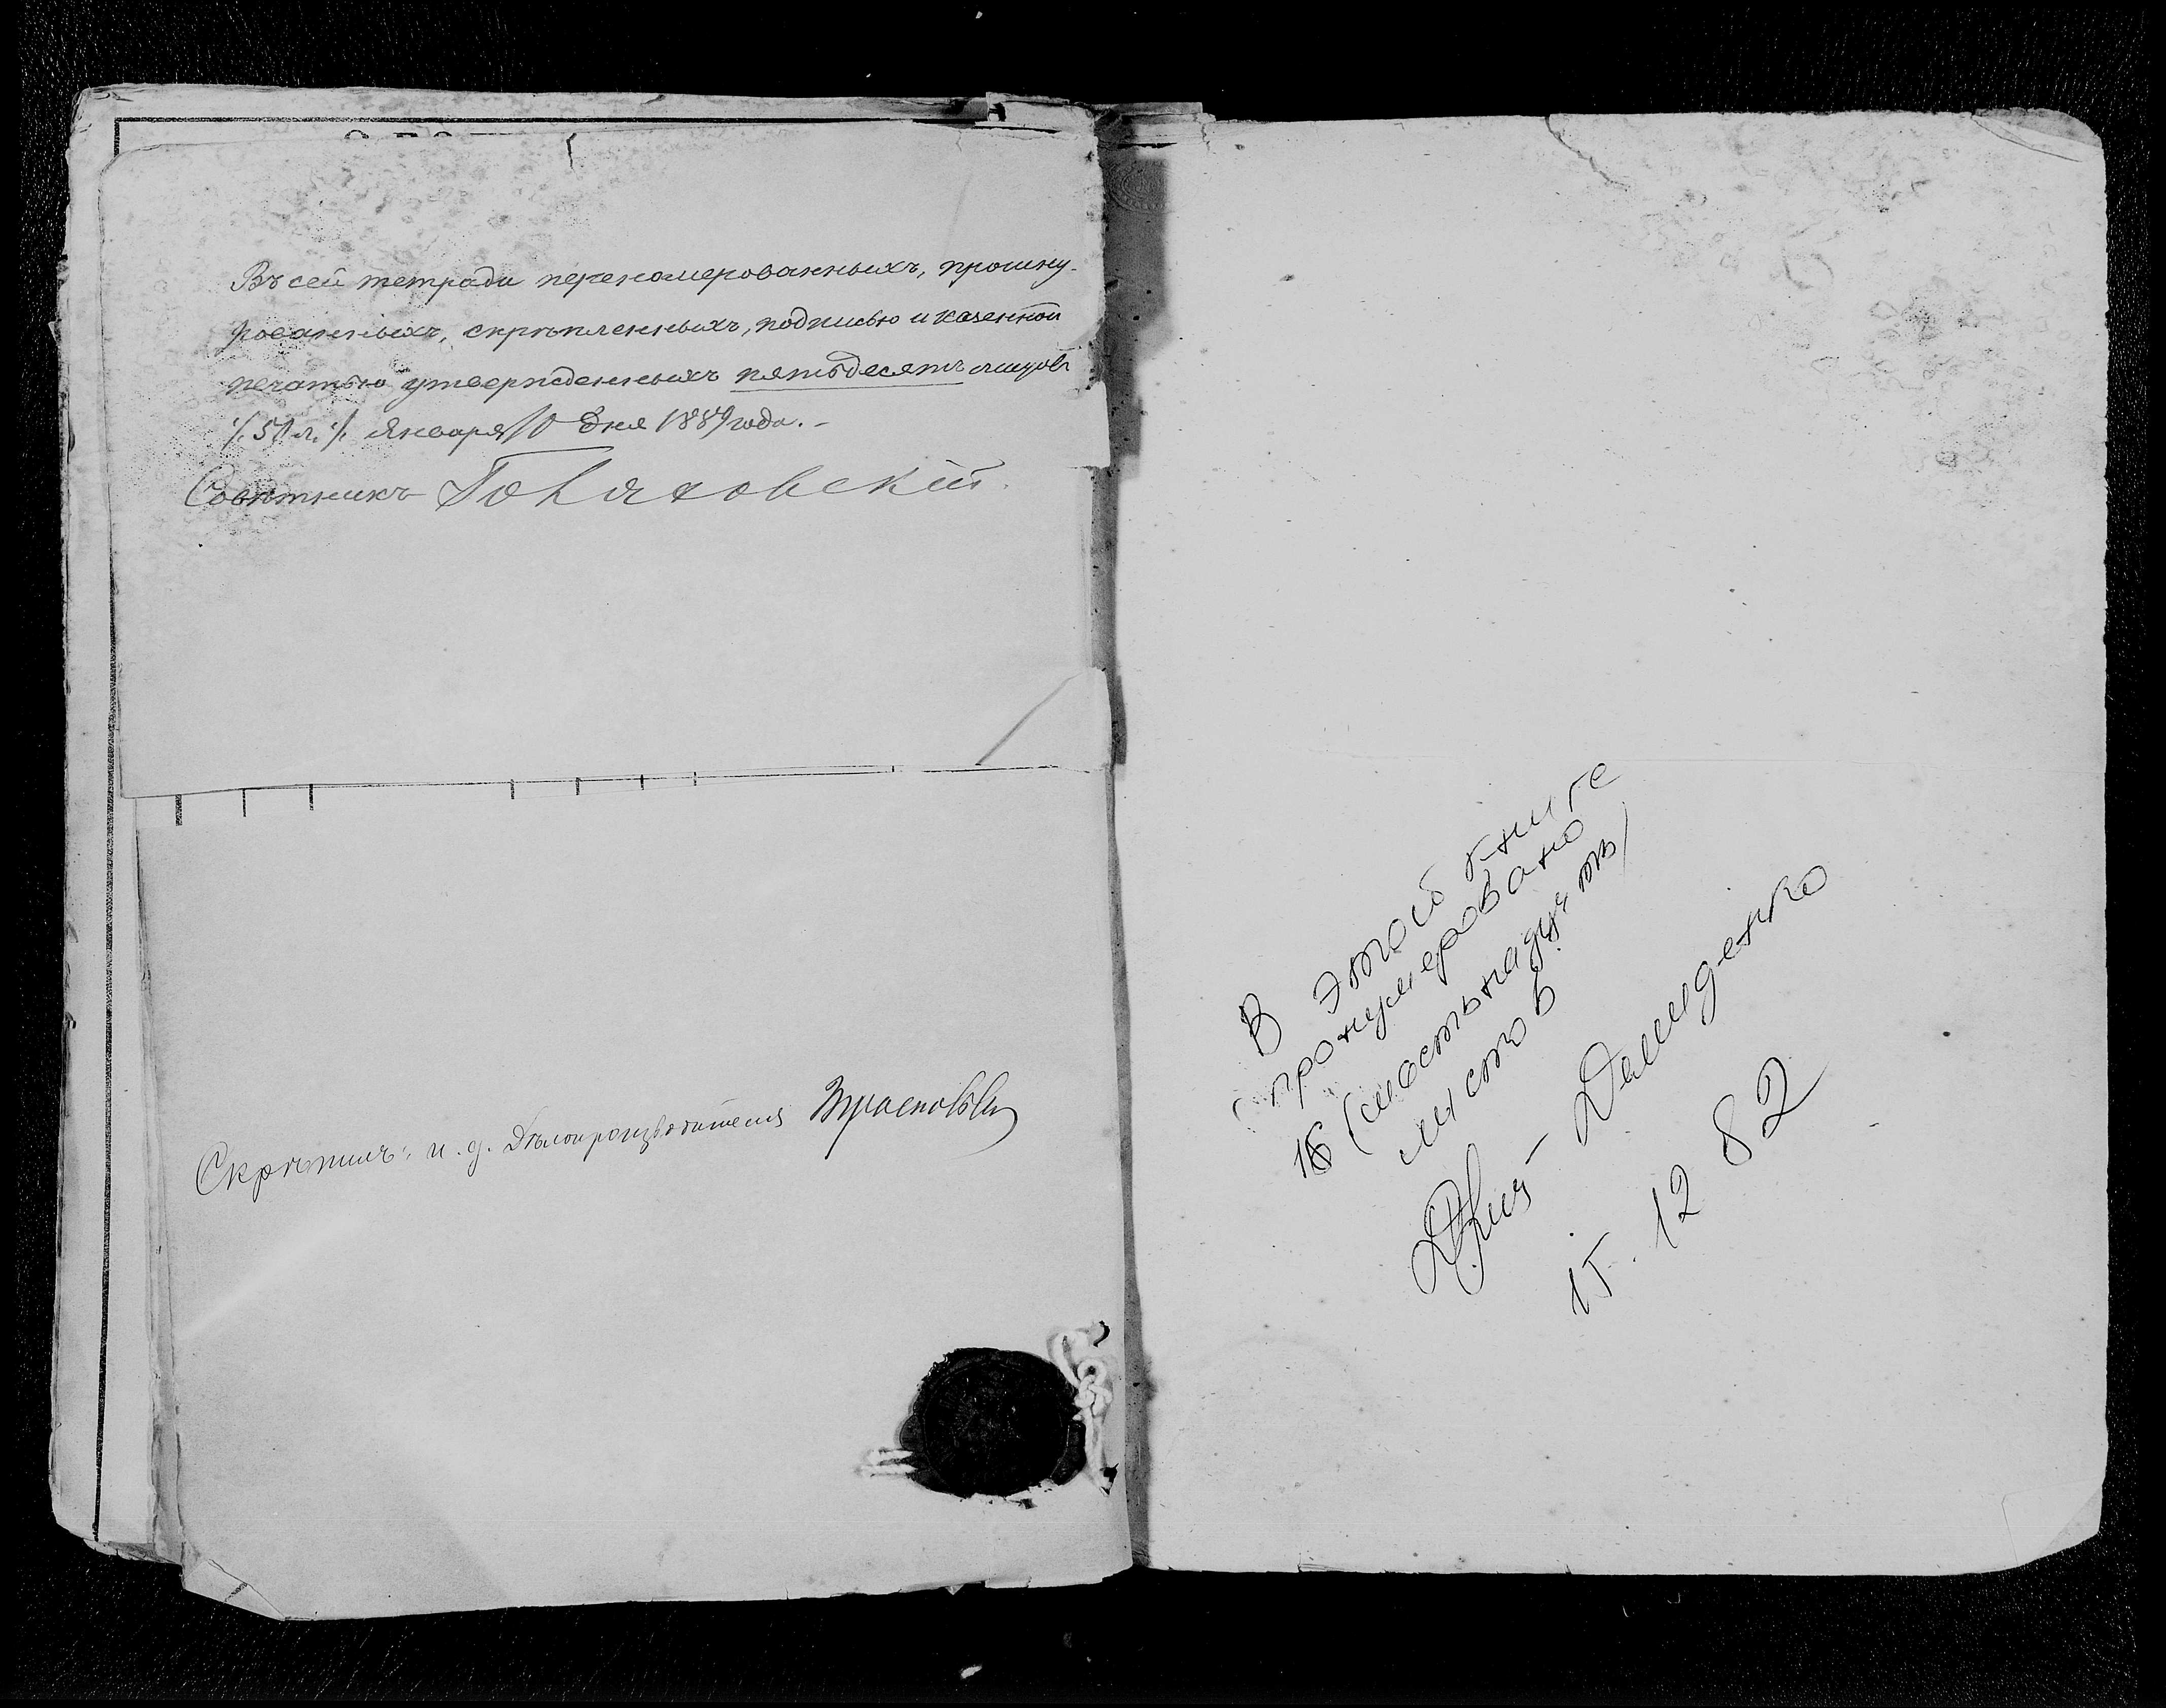 Въ сей тетради перекомерованныхъ, прошну-
рованныхъ, скрѣпленныхъ, подписью и казенной
печатью утвержденныхъ пятьдесятъ листовъ
./. 50 л. ./. Января 10 дня 1889 года. -
Совѣтникъ
Скрѣпилъ: и. д. Дѣлопроизводителя
В этой книге
пронумеровано
16 (шестьнадцать)
листов
Демиденко
15. 12 82